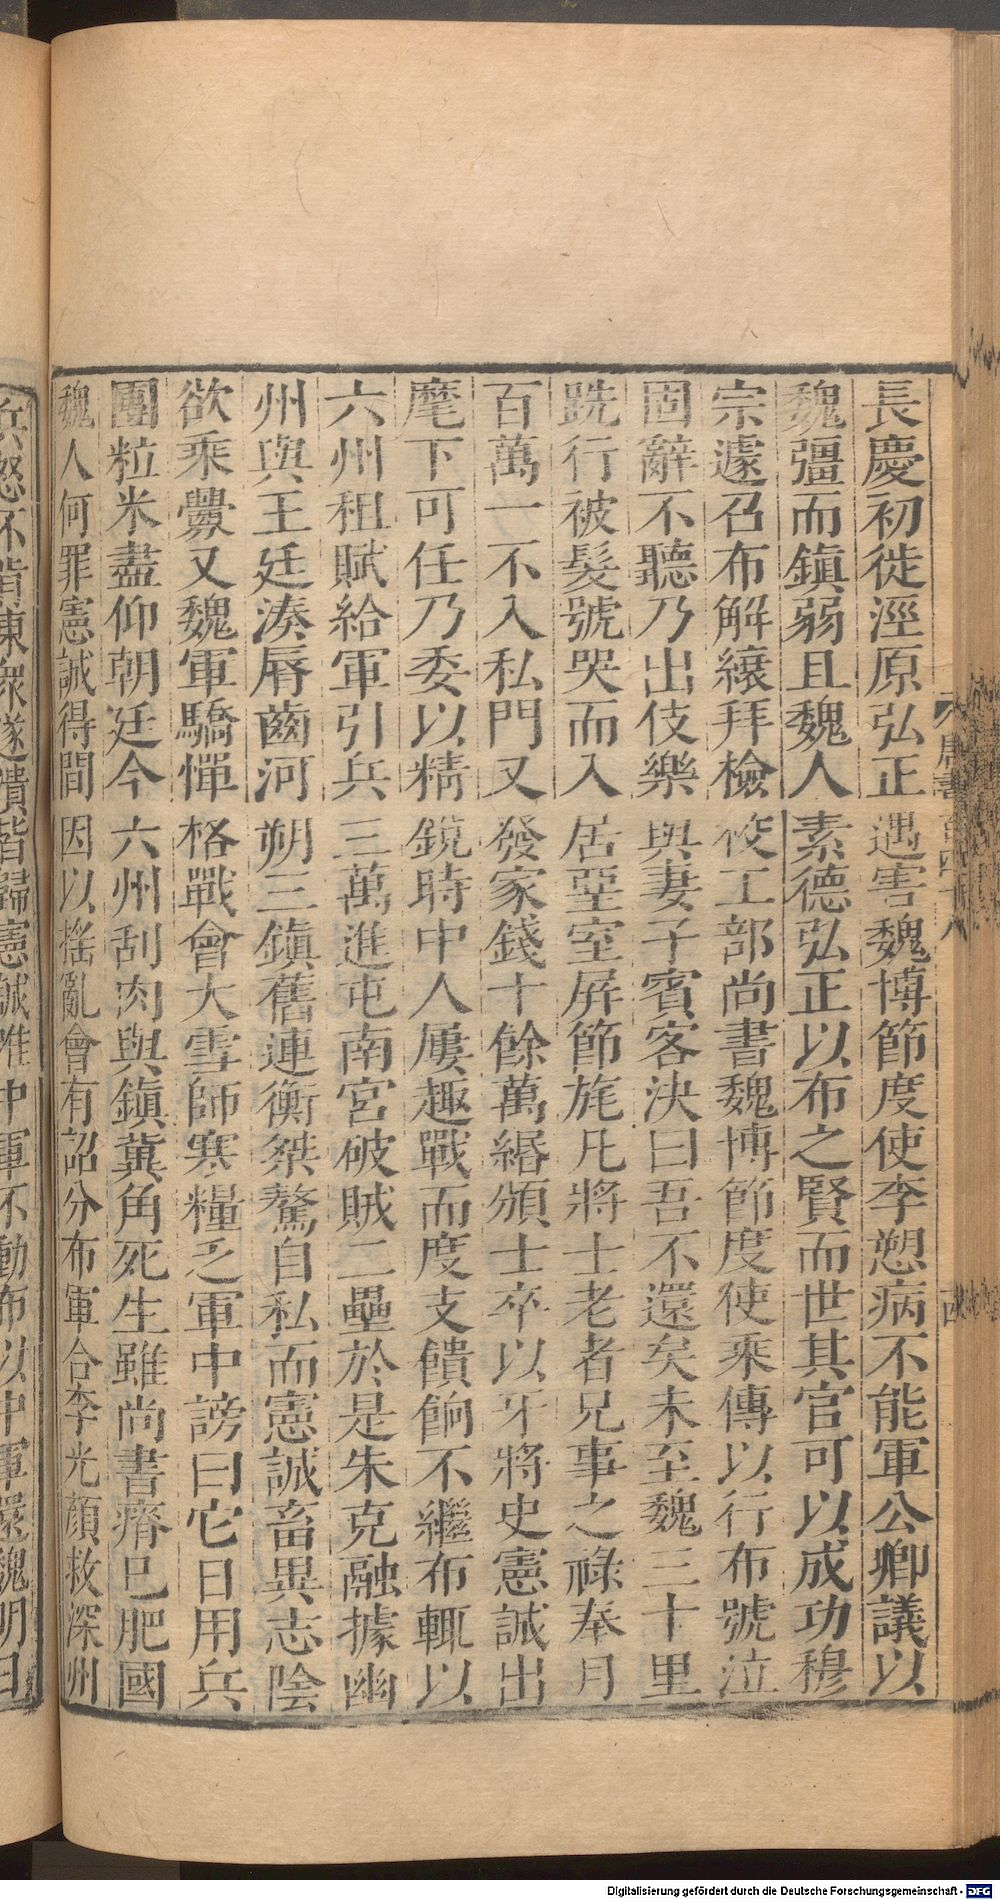 長慶初徙涇原弘正遇害魏博節度使李愬病不能軍公卿議以
魏彊而鎮弱且魏人素德弘正以布之賢而世其官可以成功穆
宗遽召布解縗拜檢校工部尚書魏博節度使乘傳以行布號泣
固辭不聽乃出伎樂與妻子賓客決曰吾不還矣未至魏三十里
跣行被髮號哭而入居堊室屏節旄凡將士老者兄事之祿奉月
百萬一不入私門又發家錢十餘萬緡頒士卒以牙將史憲誠出
麾下可任乃委以精銳時中人屢趣戰而度支饋餉不繼布輒以
六州租賦給軍引兵三萬進屯南宮破賊二壘於是朱克融據幽
州與王廷湊脣齒河朔三鎮舊連衡桀驁自私而憲誠畜異志陰
欲乘釁又魏軍驕憚格戰會大雪師寒糧乏軍中謗曰它日用兵
團粒米盡仰朝廷今六州刮肉與鎮冀角死生雖尚書瘠己肥國
魏人何罪憲誠得間因以搖亂會有詔分布軍合李光顏救深州
兵怒不肯東衆遂潰皆歸憲誠唯中軍不動布以中軍還魏明日
唐書百四十八
Digitalisierung gefördert durch die Deutsche Forschungsgemeinschaft - DFG